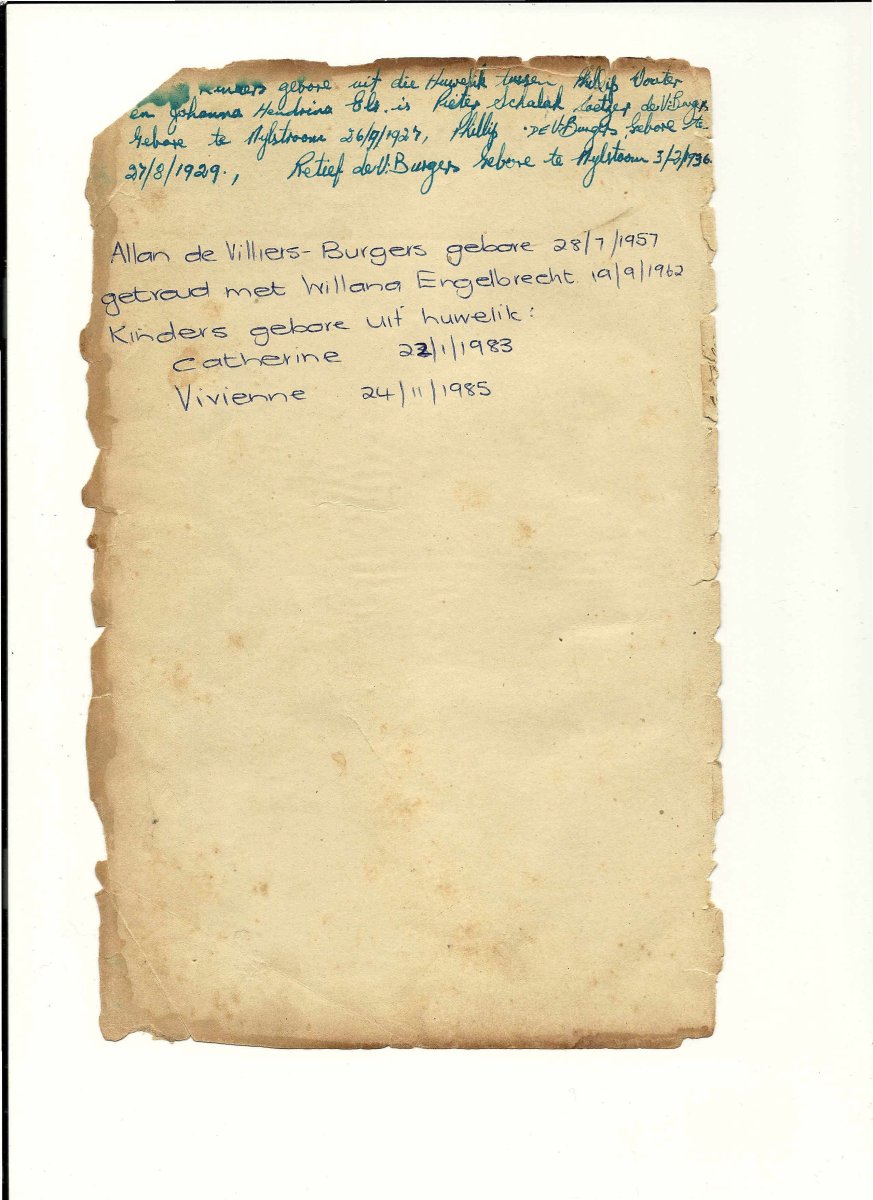 Kinders gebore uit die Huwelik tussen Phillip Wouter
en Johanna Hendrina Els. is Pieter Schalak Coetzer de V. Burgers
Gebore te Nylstroom 26/9/1927, Phillip DE V. Burgers Gebore te
27/8/1929., Retief de V. Burgers Gebore te Nylstoom 3/2/1936.
Allan de Villiers-Burgers gebore 28/7/1957
getroud met Willana Engelbrecht 19/9/1962
Kinders gebore uit huwelik:
Catherine 22/1/1983
Vivienne 24/11/1985